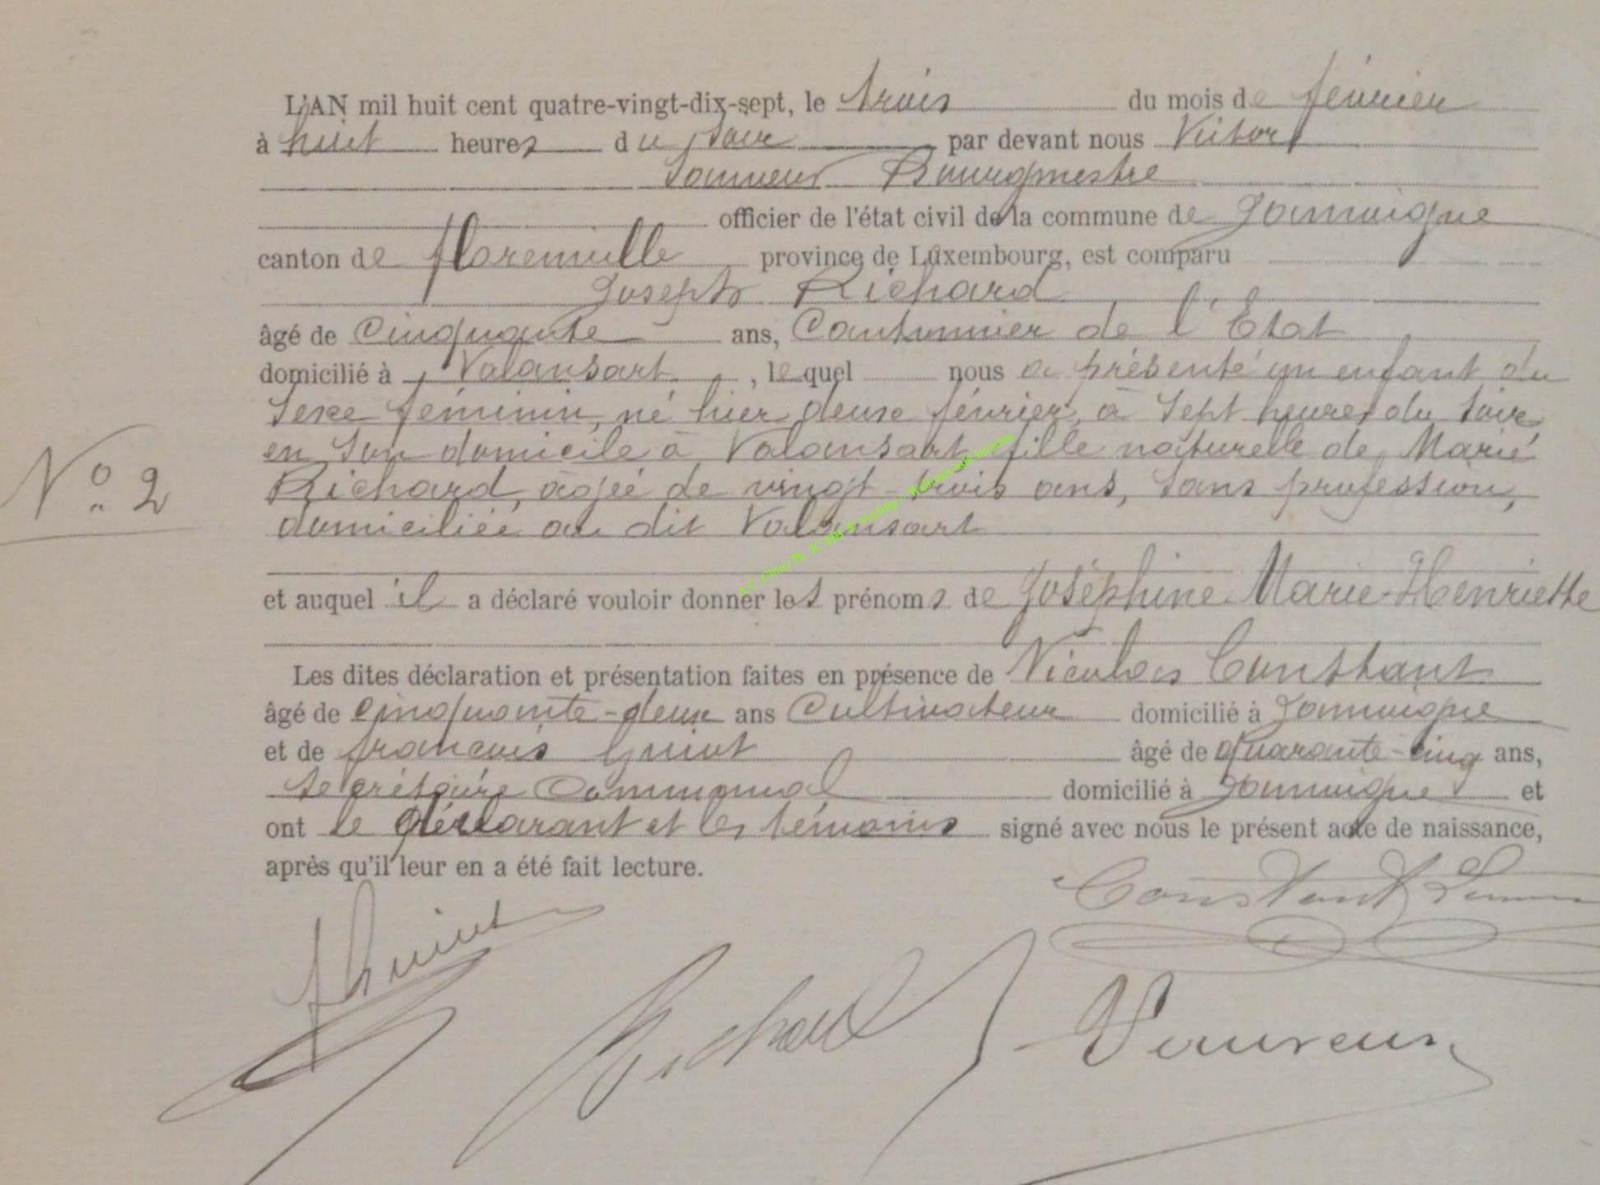 L'AN mil huit cent quatre-vingt-dix-sept, le trois du mois de février
à huit heures du soir par devant nous Victor
Bourgmestre
officier de l'état civil de la commune de Jamoigne
canton de florenville province de Luxembourg, est comparu
Joseph Richard
âgé de cinquante ans, Cantonnier de l'Etat
domicilié à Valansart, lequel nous a présenté un enfant du
Sexe féminin, né hier deux février, à Sept heures du soir
en son domicile à Valansart fille naturelle de Marie
Richard, agée de vingt-trois ans, sans profession,
domiciliée au dit Valansart
N° 2
et auquel il a déclaré vouloir donner les prénoms de Joséphine Marie-Henriette
Les dites déclaration et présentation faites en présence de Nicolas Constant
âgé de cinquante-deux ans Cultivateur domicilié à Jamoigne
et de francois âgé de quarante-cinq ans,
secrétaire Communal domicilié à Jamoigne et
ont le déclarant et les témoins signé avec nous le présent acte de naissance,
après qu'il leur en a été fait lecture.
Constant
Richard J